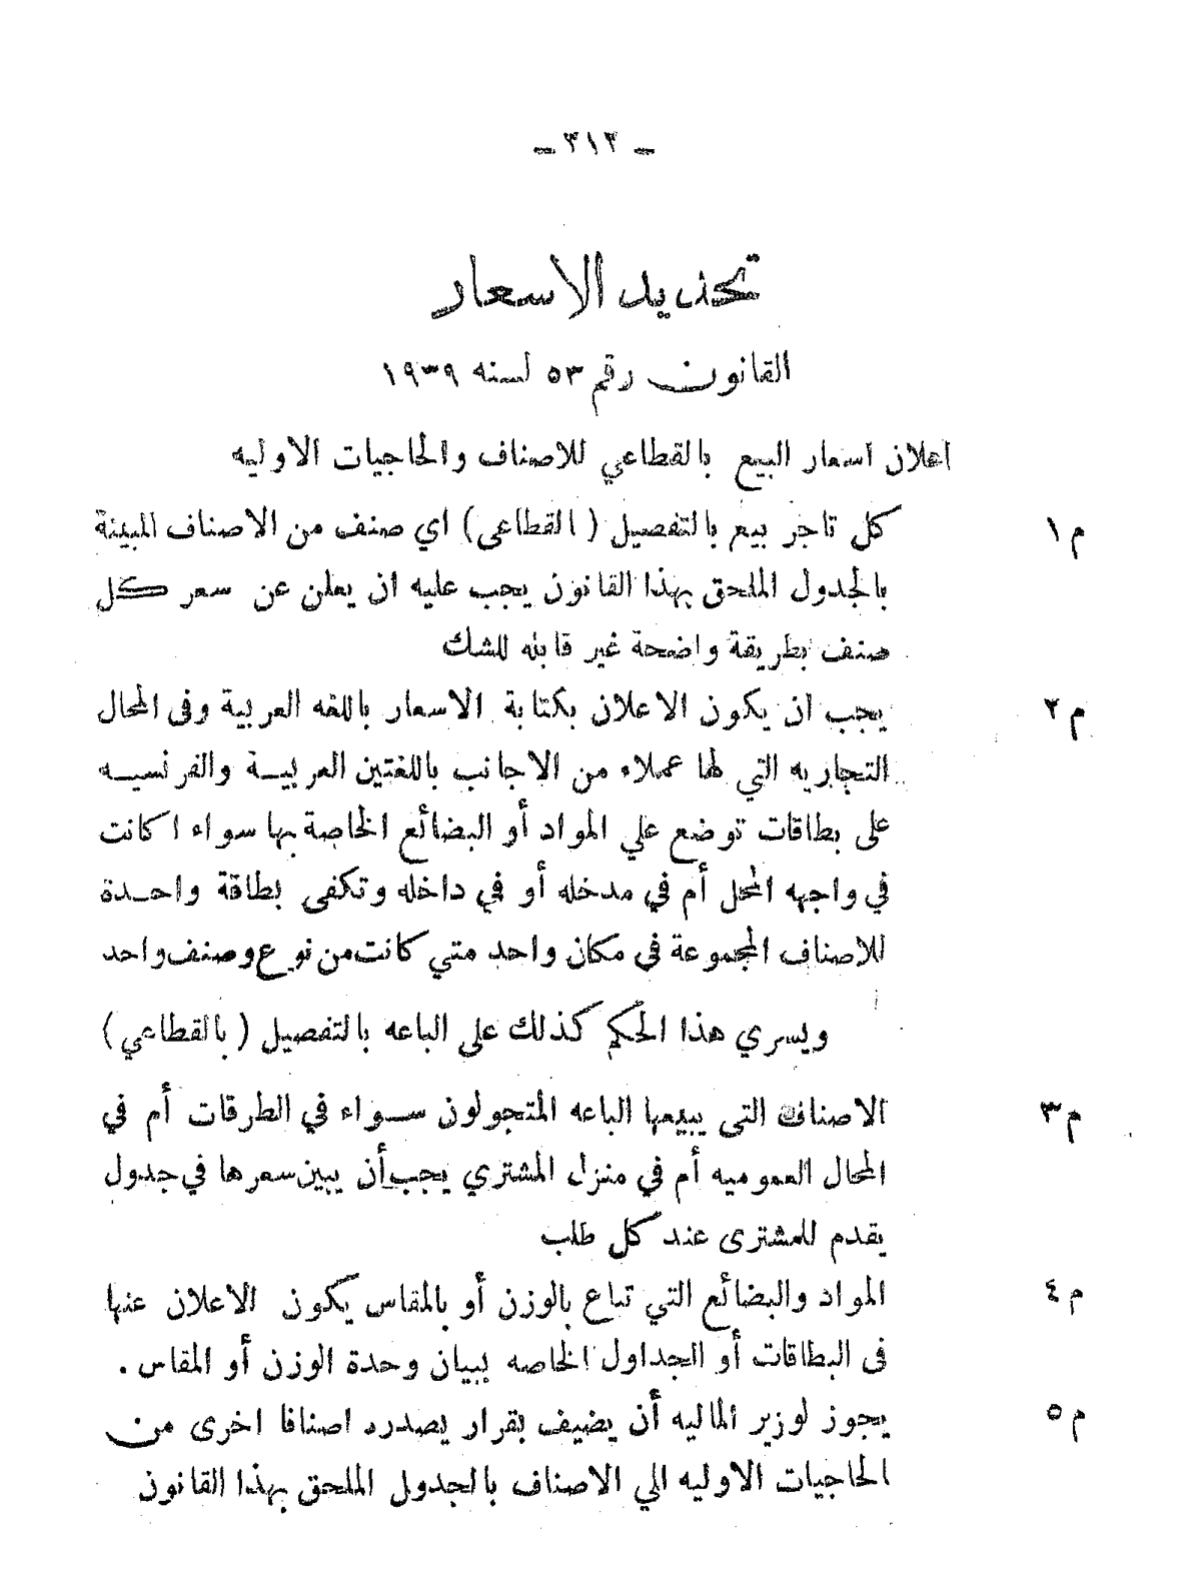 ـ ٣١٣ ـ
تحديد الاسعار
القانون رقم ٥٣ لسنه ١٩٣٩
اعلان اسعار البيع بالقطاعي للاصناف والحاجيات الاوليه
م ١ كل تاجر بيع بالتفصيل ( القطاعى) اي صنف من الاصناف المبينة
بالجدول الملحق بهذا القانون يجب عليه ان يعلن عن سعر كل
صنف بطريقة واضحة غير قابله للشك
م ٢ يجب ان يكون الاعلان بكتابة الاسعار باللغه العربية وفى المحال
التجاريه التي لها عملاء من الاجانب باللغتين العربيـة والفرنسيـه
على بطاقات توضع علي المواد أو البضائع الخاصة بها سواء اكانت
في واجهه المحل أم في مدخله أو في داخله وتكفى بطاقة واحـدة
للاصناف المجموعة في مكان واحد متي كانت من نوع وصنف واحد
ويسري هذا الحكم كذلك على الباعه بالتفصيل ( بالقطاعي )
م ٣ الاصناف التى يبيعها الباعه المتجولون سـواء في الطرقات أم في
المحال العموميه أم في منزل المشتري يجب أن يبين سعرها في جدول
يقدم للمشترى عند كل طلب
م ٤ المواد والبضائع التي تباع بالوزن أو بالمقاس يكون الاعلان عنها
فى البطاقات أو الجداول الخاصه ببيان وحدة الوزن أو المقاس .
م ٥ يجوز لوزير الماليه أن يضيف بقرار يصدره اصنافا اخرى من
الحاجيات الاوليه الي الاصناف بالجدول الملحق بهذا القانون